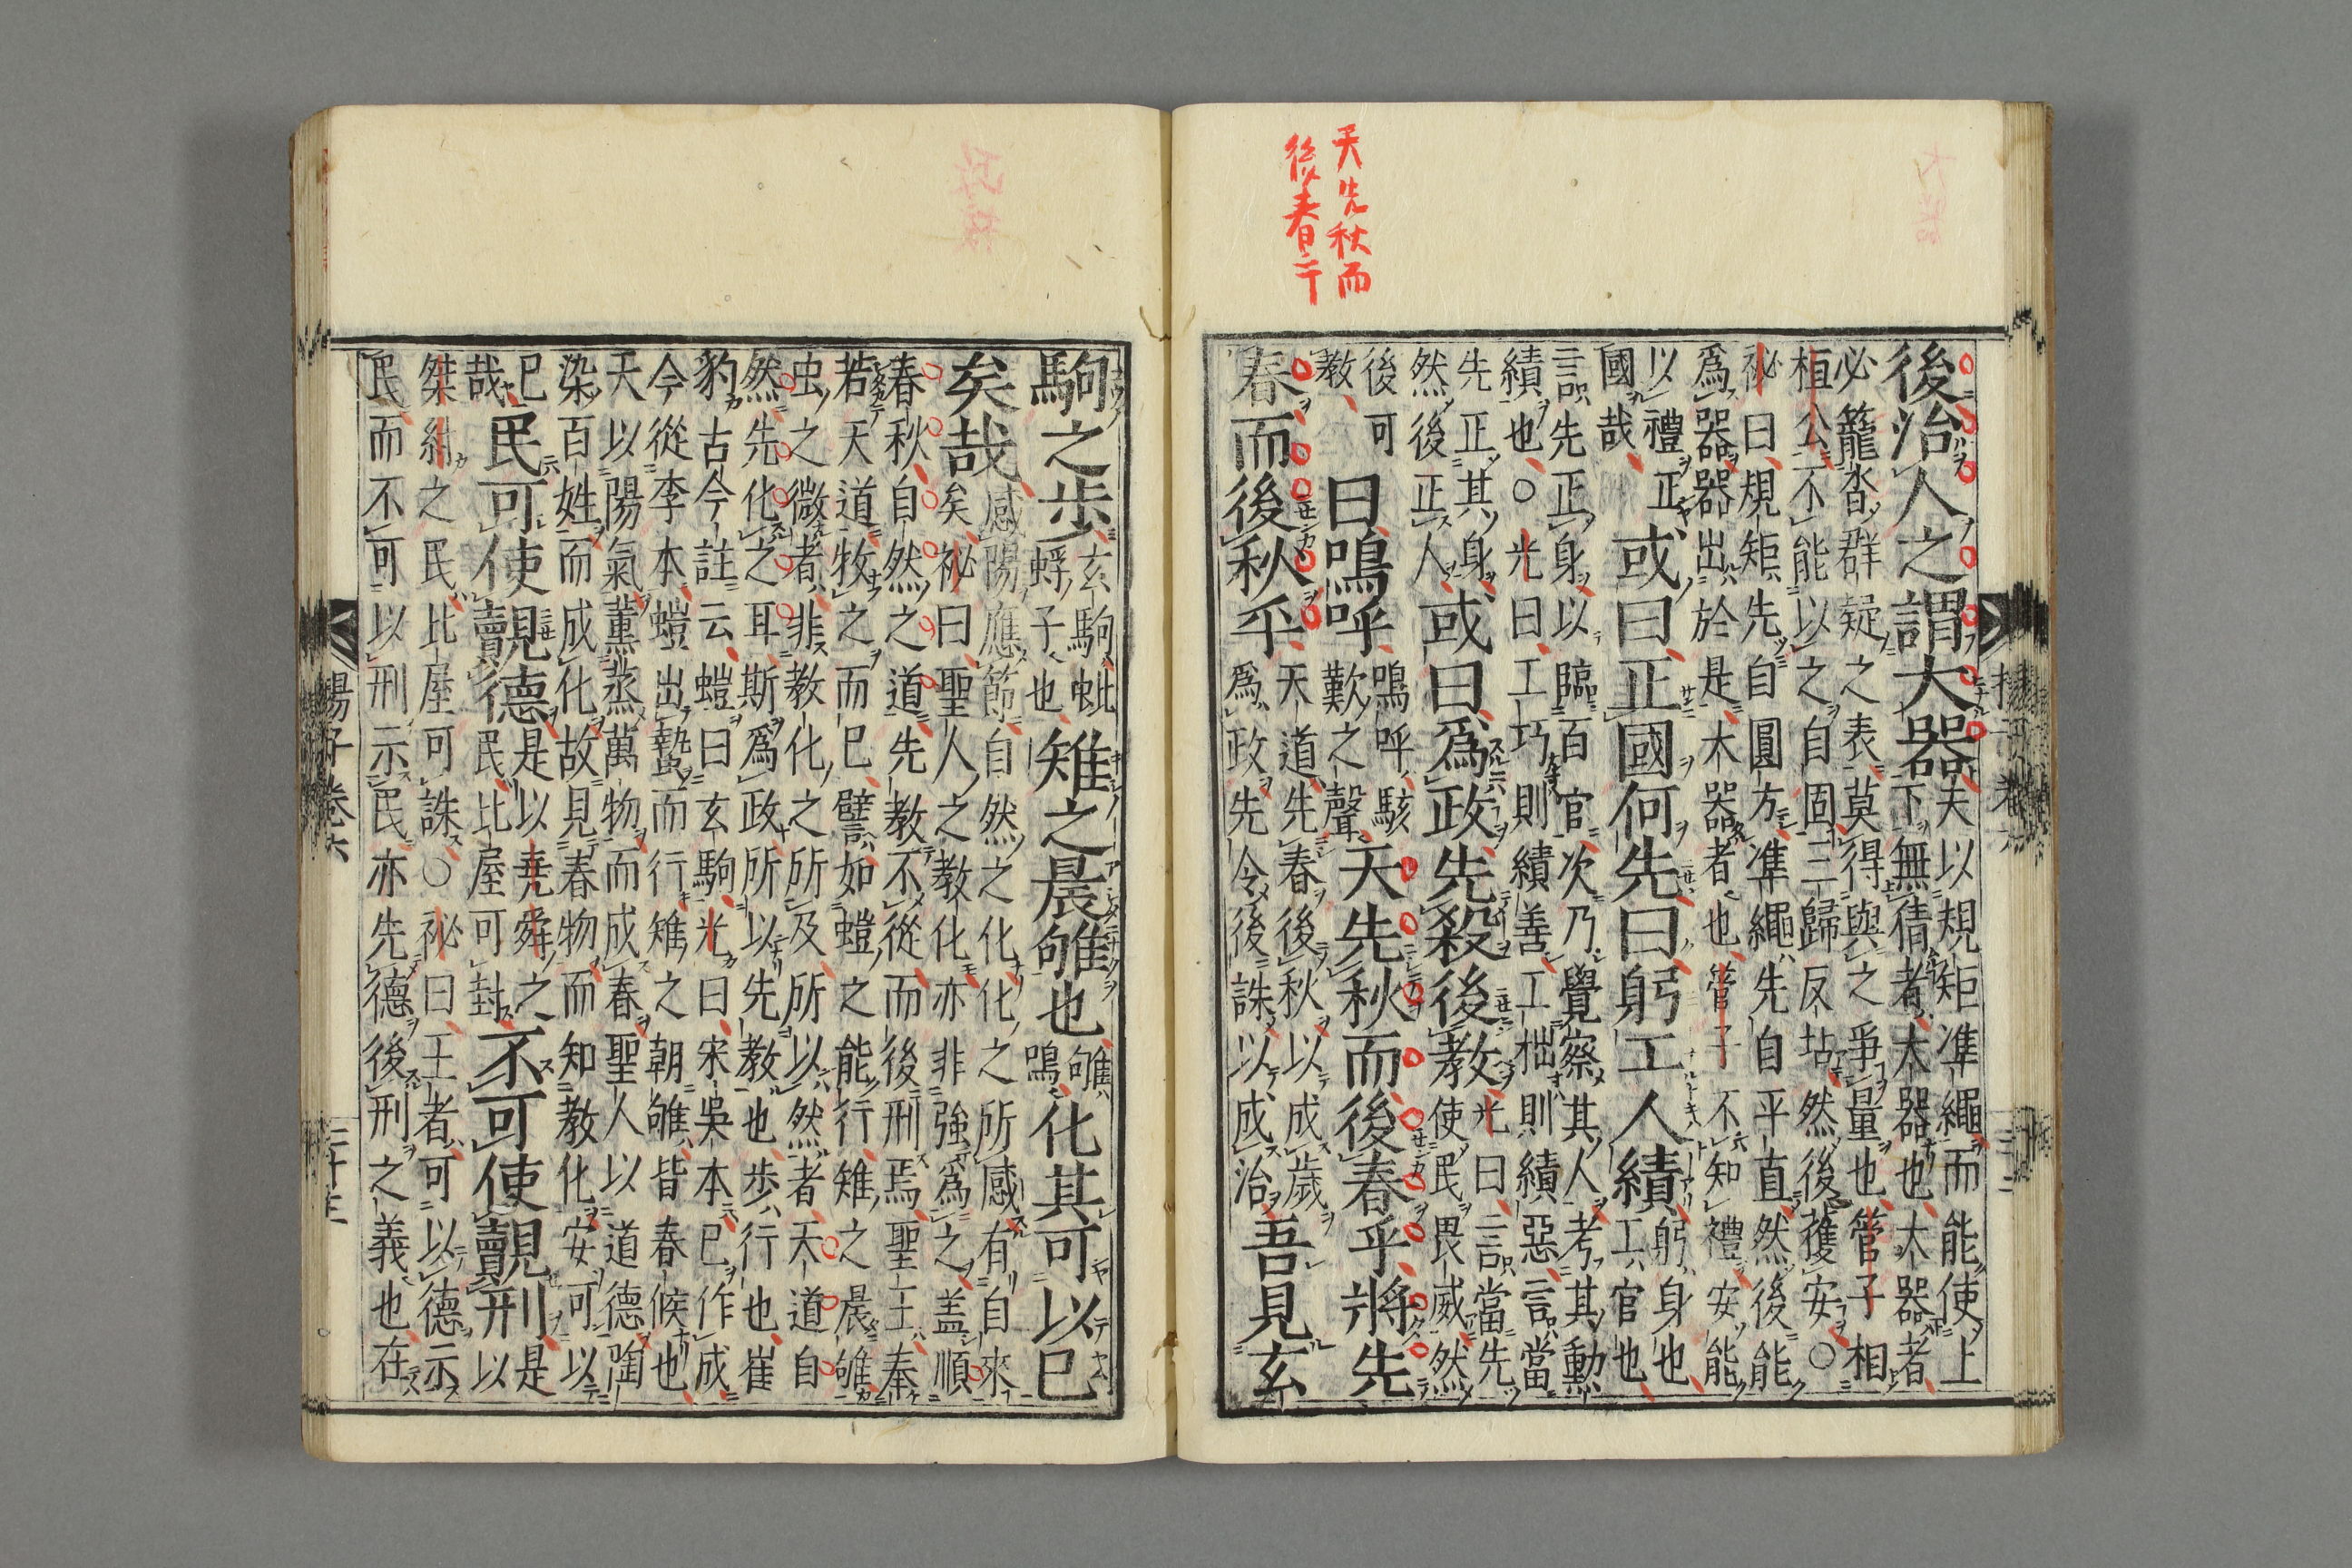 天先秋而
後春乎
後治人之謂大器
夫以規矩準繩而能使上
下無猜者大器也大器者
必籠沓群疑之表莫得與之爭量也管子相
桓公不能以之自固三歸反坫然後獲安〇
祕曰規矩先自圓方準繩先自平直然後能
爲器器出於是大器者也管子不知禮安能
以禮正
國哉
或曰正國何先曰躬工人績
躬身也
工官也
言先正身以臨百官次乃覺察其人考其勳
績也〇光曰工巧則績善工拙則績惡言當
先正其身
然後正人
或曰爲政先殺後教
光曰言當先
使民畏威然
後可
教
曰嗚呼
嗚呼駭
歎之聲
天先秋而後春乎將先
春而後秋乎
天道先春後秋以成歲
爲政先令後誅以成治
吾見玄
駒之步
玄駒蚍
蜉子也
雉之晨雊也
雊
鳴
化其可以已
矣哉
感陽應節自然之化化之所感有自來
矣祕曰聖人之教化亦非強爲之盖順
春秋自然之道先教不從而後刑焉聖王奉
若天道牧之而已譬如螘之能行雉之晨雊
虫之微者非教化之所及所以然者天道自
然先化之耳斯爲政所以先教也步行也崔
豹古今註云螘曰玄駒光曰宋吳本已作成
今從李本螘出蟄而行雉之朝雊皆春候也
天以陽氣薰蒸萬物而成春聖人以道德陶
染百姓而成化故見春物而知教化安可以
已
哉
民可使覿德
是以堯舜之
民比屋可封
不可使覿刑
是以
桀紂之民比屋可誅〇祕曰王者可以德示
民而不可以刑示民亦先德後刑之義也在
揚子卷六
二十三